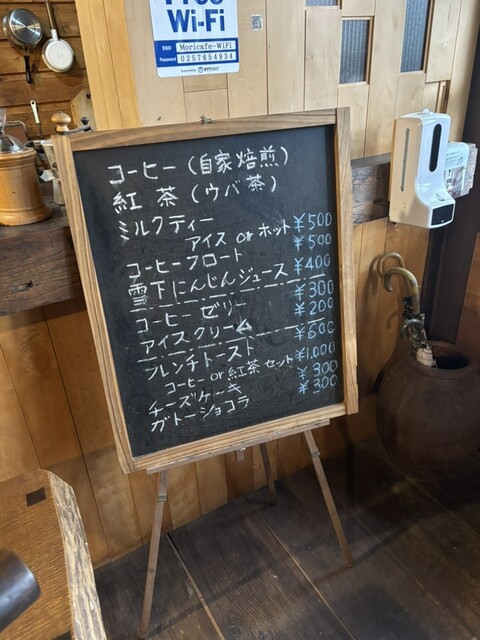 Free
Wi-Fi
SSID Moricafe-WiFi
Password 0257654934
コーヒー(自家焙煎)
紅茶(ウバ茶)
ミルクティー
アイス or ホット ¥500
コーヒーフロート ¥500
雪下にんじんジュース ¥400
コーヒーゼリー ¥300
アイスクリーム ¥200
フレンチトースト ¥600
コーヒー or 紅茶セット ¥1,000
チーズケーキ ¥300
ガトーショコラ ¥300